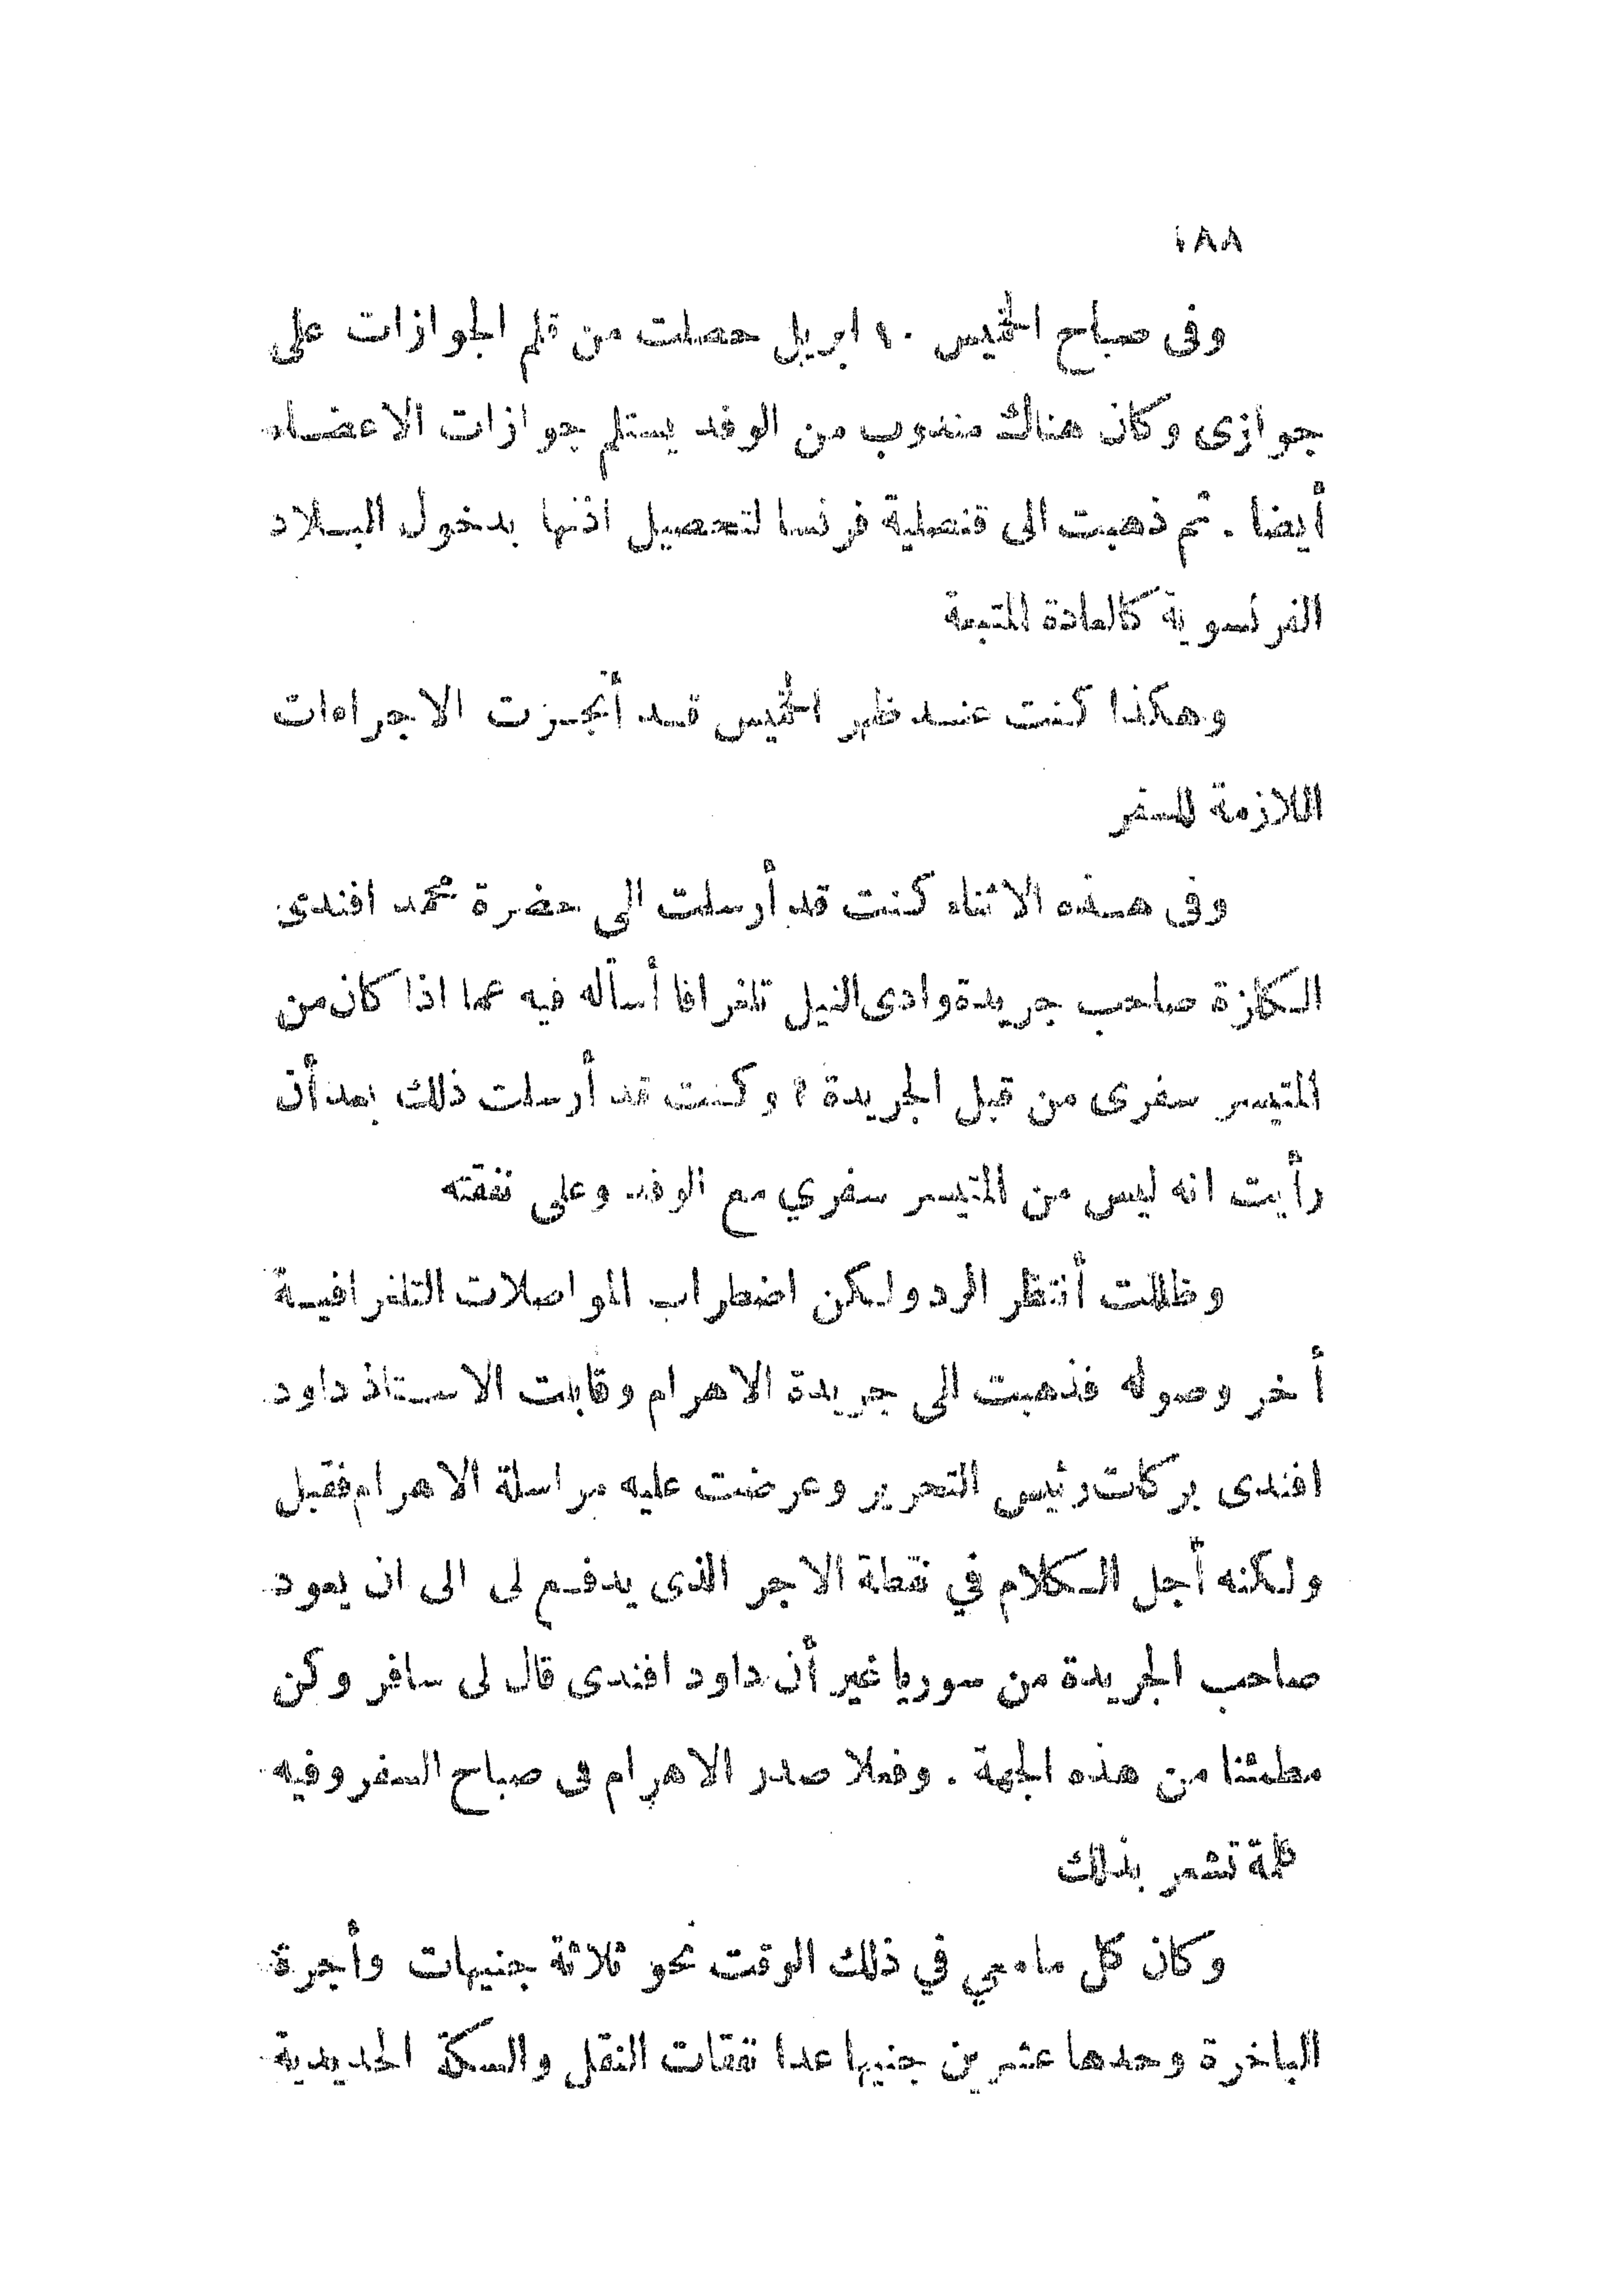 ١٨٨
وفى صباح الخميس ١٠ ابريل حصلت من قلم الجوازات على
جوازى وكان هناك مندوب من الوفد يستلم جوازات الاعضاء
أيضا . ثم ذهبت الى قنصلية فرنسا لتحصيل اذنها بدخول البلاد
الفرنسوية كالعادة المتبعة
وهكذا كنت عند ظهر الخميس قد أنجزت الاجراءات
اللازمة للسفر
وفى هذه الاثناء كنت قد أرسلت الى حضرة محمد افندى
الكلزة صاحب جريدة وادى النيل تلغرافا أسأله فيه عما اذا كان من
المتيسر سفرى من قبل الجريدة ؟ وكنت قد أرسلت ذلك بعد أن
رأيت انه ليس من المتيسر سفري مع الوفد وعلى نفقته
وظللت أنتظر الرد ولكن اضطراب المواصلات التلغرافية
أخر وصوله فذهبت الى جريدة الاهرام وقابلت الاستاذ داود
افندى بركات رئيس التحرير وعرضت عليه مراسلة الاهرام فقبل
ولكنه أجل الكلام في نقطة الاجر الذى يدفع لى الى ان يعود
صاحب الجريدة من سوريا غير أن داود افندى قال لى سافر وكن
مطمئنا من هذه الجهة . وفعلا صدر الاهرام فى صباح السفر وفيه
كلمة تشعر بذلك
وكان كل مامعي في ذلك الوقت نحو ثلاثة جنيهات وأجرة
الباخرة وحدها عشرين جنيها عدا نفقات النقل والسكة الحديدية